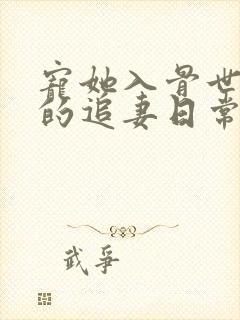 寵她入骨世
的追妻日常
武爭